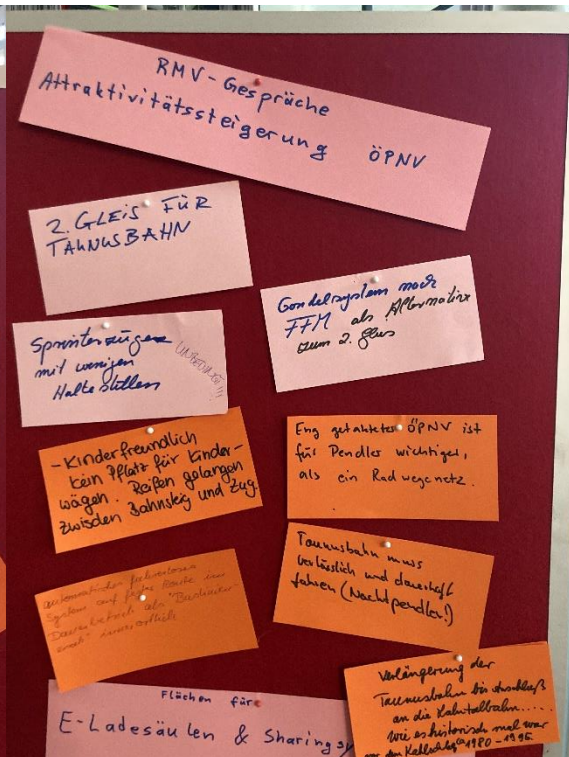 RMV-Gespräche
Attraktivitätssteigerung ÖPNV
2. GLEIS FÜR
TAUNUSBAHN
Gondelsystem nach
FFM als Alternative
zum 2. Gleis
Sprinterzüge
mit wenigen
Haltestellen
UNBEDINGT!!!
-Kinderfreundlich
kein Pflatz für Kinder-
wägen. Reifen gelangen
zwisden Bahnsteig und Zug.
Eng getakteter ÖPNV ist
für Pendler wichtiger,
als ein Radwegenetz.
Taunusbahn muss
verlässlich und dauerhaft
fahren (Nachtpendler!)
automatisches fahrerloses
System auf fester Route im
Dauerbetrieb als
innerörtlich
Verlängerung der
Taunusbahn bis Anschluß
an die Lahntalbahn.....
wie es historisch mal war
vor den 1980-1995
Flächen für
E-Ladesäulen & Sharing